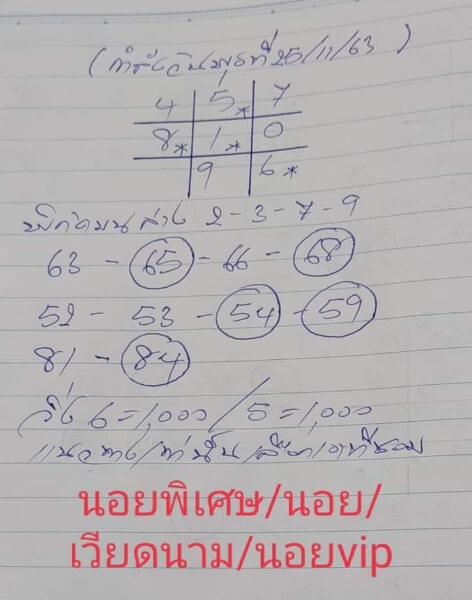 (กำลังวันพุธที่ 25/11/63)
4 5* 7
8* 1* 0
9 6*
พิกัดบน ล่าง 2-3-7-9
63 - 65 - 66 - 68
52 - 53 - 54 - 59
81 - 84
วิ่ง 6=1,000/5=1,000
แนวทางเท่านั้นเลือกเอาที่ชอบ
นอยพิเศษ/นอย/
เวียดนาม/นอยvip